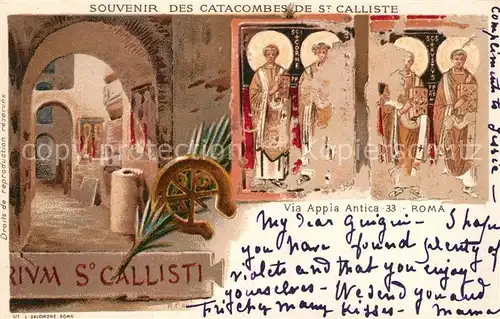 SOUVENIR DES CATACOMBES DE ST CALLISTE
Droits de reproduction réservés
Via Appia Antica 33 - ROMA
RIVM S° CALLISTI
LIT. SALOMONE ROMA
My dear - I hope
you have found plenty of
violets and that you enjoy
yourselves - We send you and
many kisses - Mama